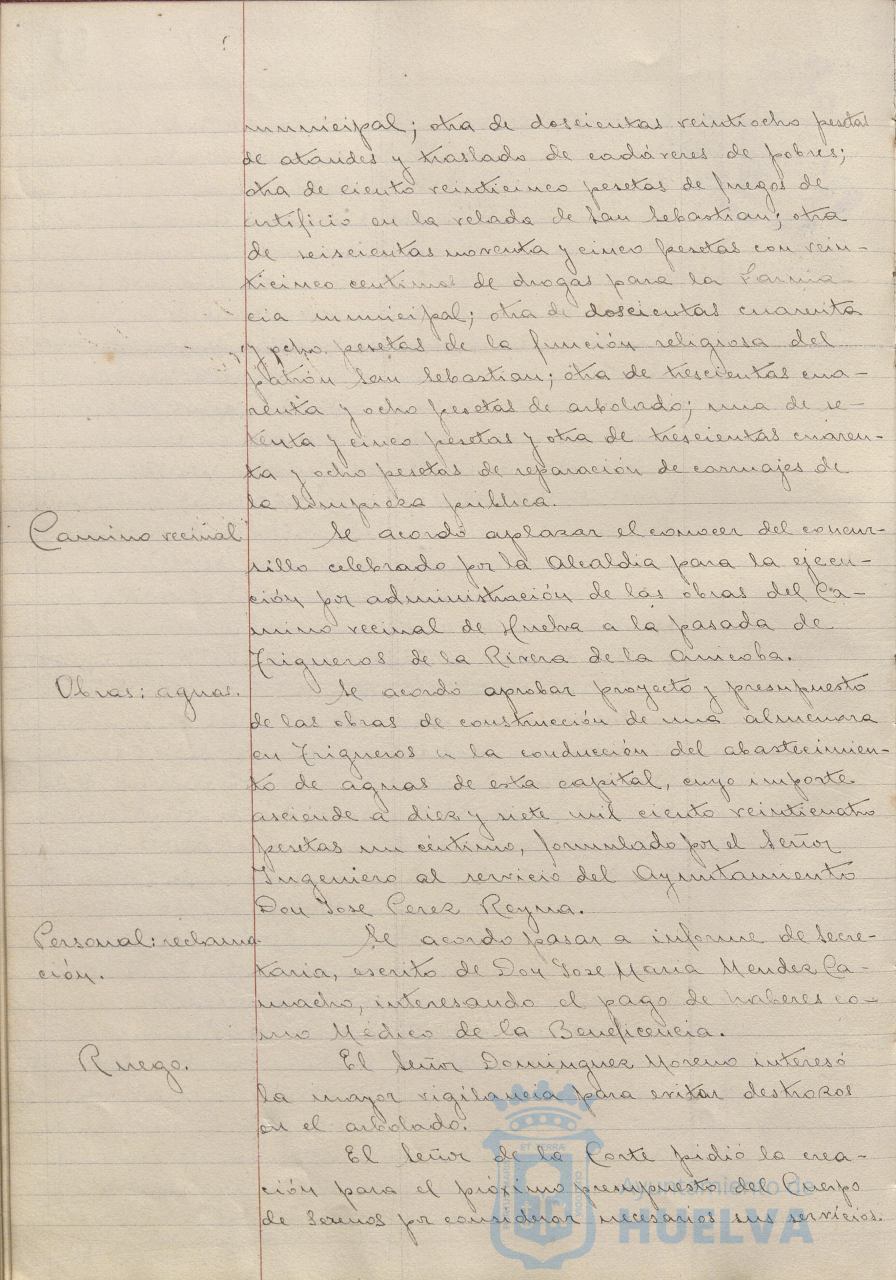 municipal; otra de doscientas veintiocho pesetas
de ataudes y traslado de cadáveres de pobres;
otra de ciento veinticinco pesetas de fuegos de
artificio en la velada de San Sebastian; otra
de seiscientas noventa y cinco pesetas con vein-
ticinco centimos de drogas para la Farma-
cia municipal; otra de doscientas cuarenta
y ocho pesetas de la función religiosa del
patrón San Sebastian; otra de trescientas cua-
renta y ocho pesetas de arbolado; una de se-
tenta y cinco pesetas y otra de trescientas cuaren-
ta y ocho pesetas de reparación de carruajes de
la limpieza pública.
Camino vecinal
Se acordó aplazar el conocer del concur-
sillo celebrado por la Alcaldia para la ejecu-
ción por administración de las obras del Ca-
mino vecinal de Huelva a la pasada de
Trigueros de la Rivera de la Anicoba.
Obras: aguas.
Se acordó aprobar proyecto y presupuesto
de las obras de construcción de una almenara
en Trigueros en la conducción del abastecimien-
to de aguas de esta capital, cuyo importe
asciende a diez y siete mil ciento veinticuatro
pesetas un céntimo, formulado por el Señor
Ingeniero al servicio del Ayuntamiento
Don Jose Perez Reyna.
Personal: reclama
ción.
Se acordo pasar a informe de Secre-
taria, escrito de Don Jose Maria Mendez Ca-
macho, interesando el pago de haberes co-
mo Médico de la Beneficencia.
Ruego.
El Señor Dominguez Moreno interesó
la mayor vigilancia para evitar destrozos
en el arbolado.
El Señor de la Corte pidió la crea-
ción para el próximo presupuesto del Cuerpo
de Serenos por considerar necesarios sus servicios.
Ayuntamiento de
HUELVA